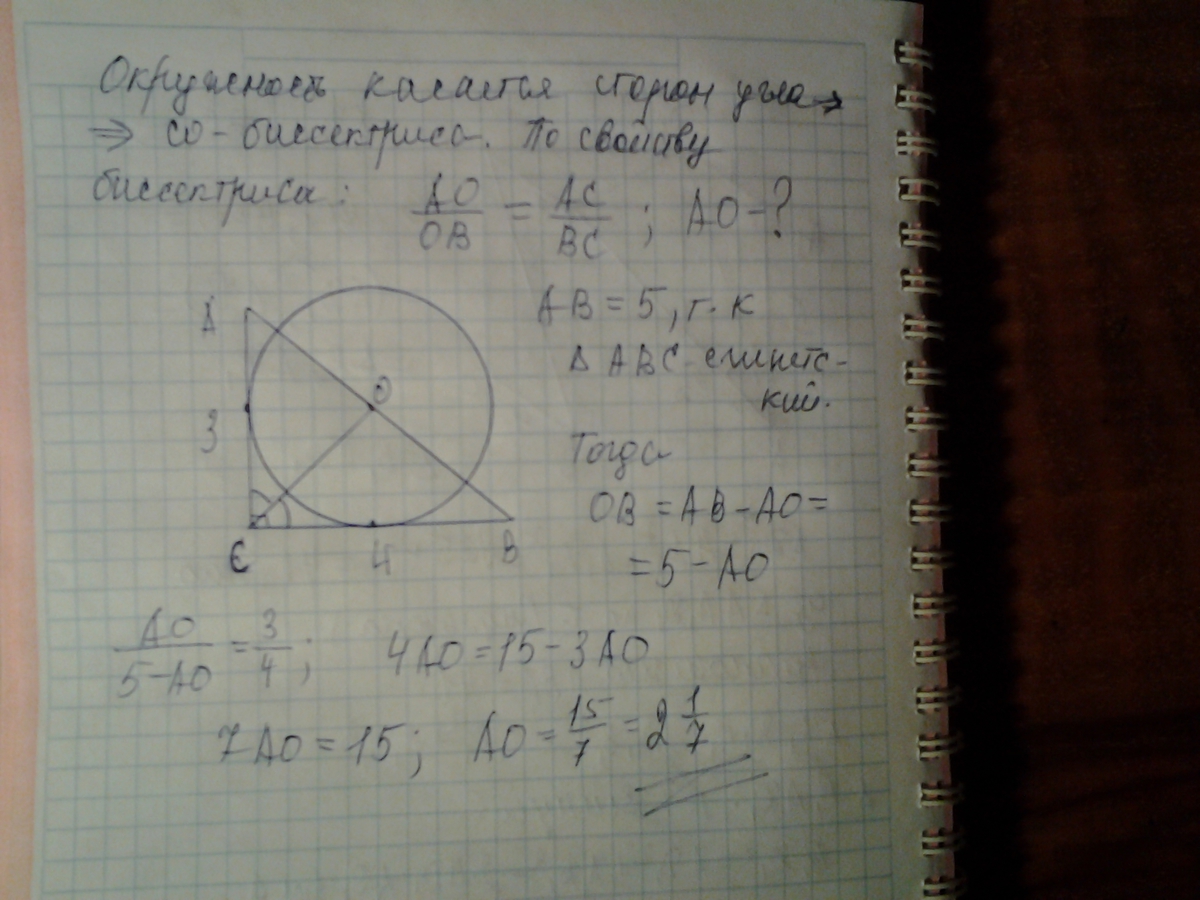 Окружность касается сторон угла ⇒
⇒ CO - биссектриса. По свойству
биссектрисы: AO/OB = AC/BC ; AO - ?
AB = 5, т. к
Δ ABC - египетс-
кий.
Тогда
OB = AB - AO =
= 5 - AO
A
O
3
C
4
B
AO/(5-AO) = 3/4 ; 4AO = 15 - 3AO
7AO = 15 ; AO = 15/7 = 2 1/7